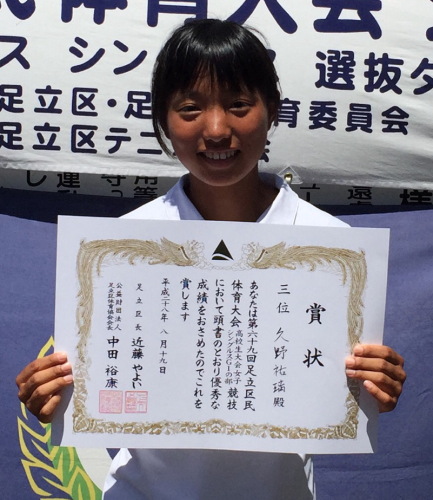 体育大会
ス シングルス 選抜ダ
足立区・足
育委員会
足立区テニ
会
賞状
三位 久野祐瑀殿
あなたは第六十九回足立区民
体育大会 高校生大会女子シングルスG1の部 競技
において頭書のとおり優秀な
成績をおさめたのでこれを
賞します
平成二十八年八月十九日
足立区長 近藤やよい
公益財団法人
足立区体育協会会長 中田裕康